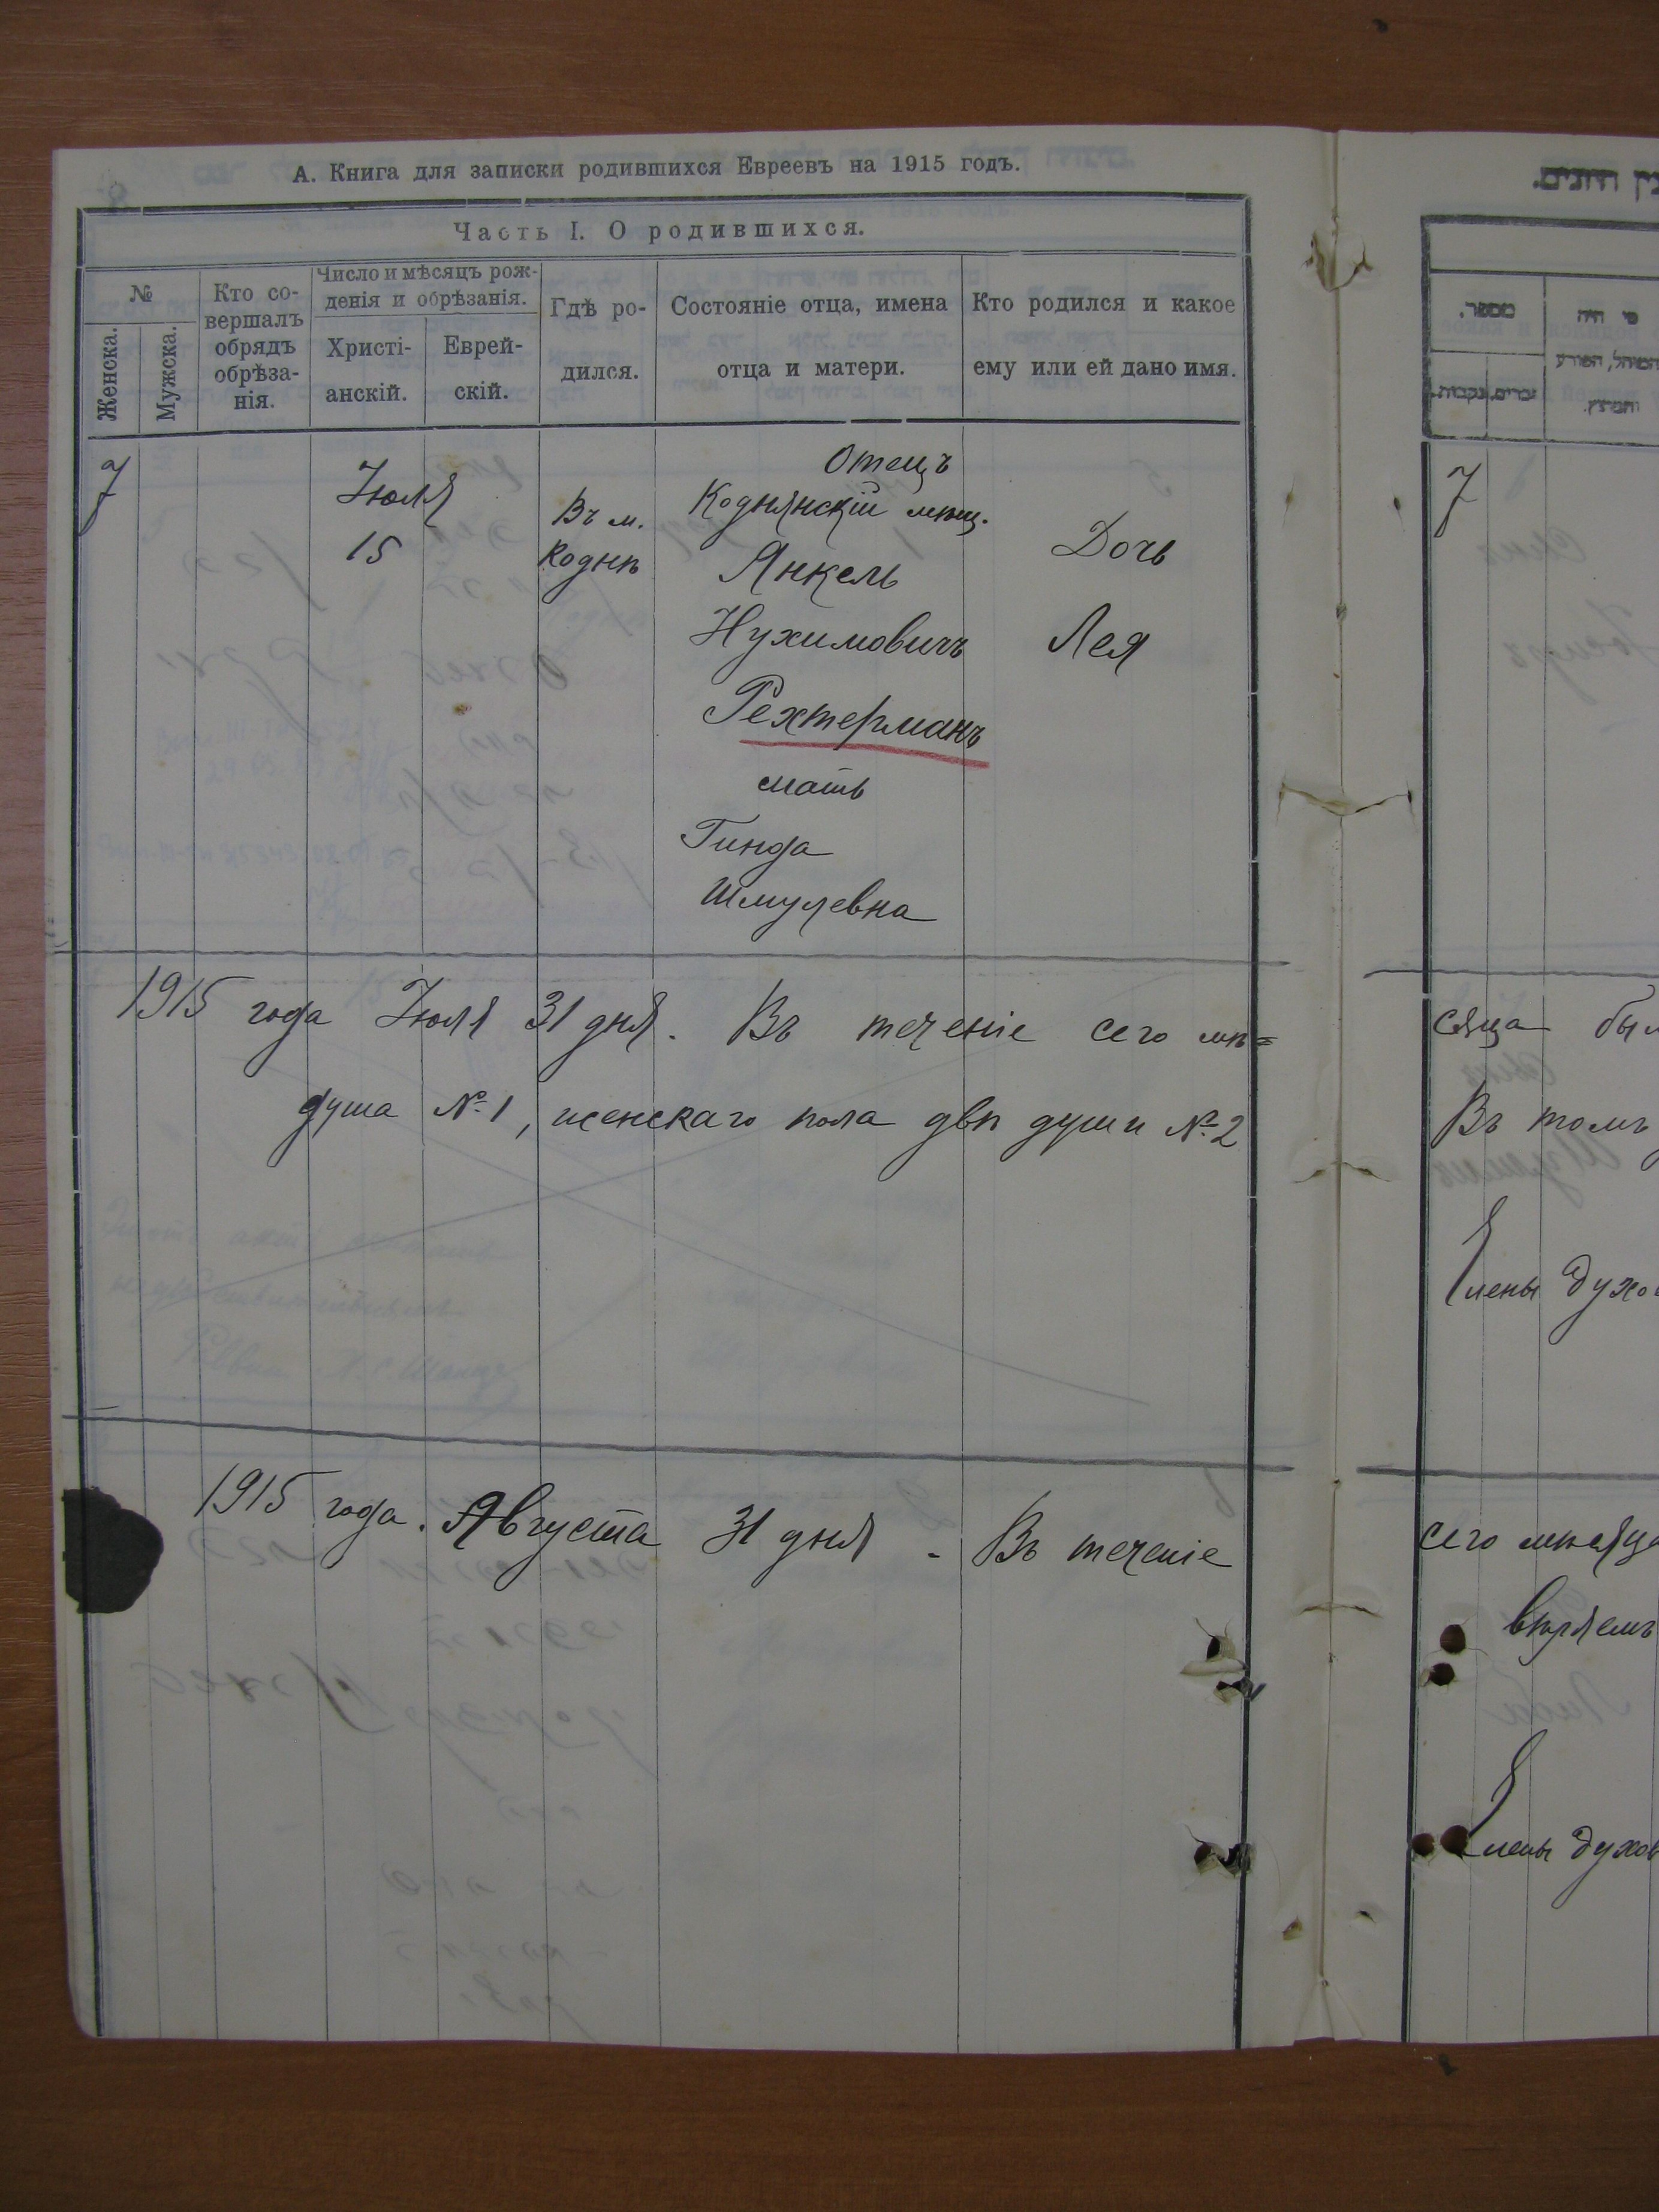 А. Книга для записки родившихся Евреевъ на 1915 годъ.
Часть I. О родившихся.
№
Женска.
Мужска.
Кто со-
вершалъ
обрядъ
обрѣза-
нія.
Число и мѣсяцъ рож-
денія и обрѣзанія.
Христі-
анскій.
Еврей-
скій.
Гдѣ ро-
дился.
Состояніе отца, имена
отца и матери.
Кто родился и какое
ему или ей дано имя.
7
Іюля
15
Въ м.
Коднѣ
Отецъ
Коднянскій мѣщ.
Янкель
Нухимовичъ
Рехтерманъ
мать
Гинда
Шмулевна
Дочь
Лея
1915 года Іюля 31 дня. Въ теченіе сего мѣ=
душа № 1, женскаго пола двѣ души № 2
1915 года. Августа 31 дня - Въ теченіе
מספר.
זכרים.
נקבות.
מי היה
המוהל, הפורע
והמוצץ.
7
сяца был
Въ томъ
Члены духо
сего мѣсяца
вѣряемъ
Члены духов